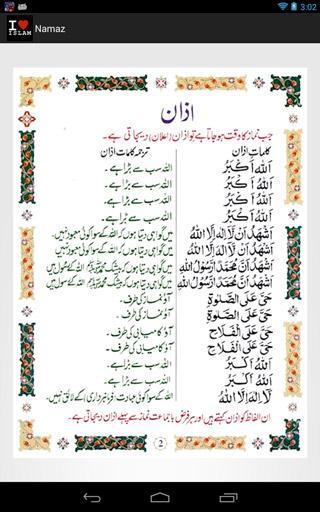 3:02
I ❤ ISLAM
Namaz
اذان
جب نماز کا وقت ہو جاتا ہے تو اذان (اعلان) دیجاتی ہے۔
کلمات اذان ترجمہ کلمات اذان
اَللّٰهُ اَكْبَرُ اللہ سب سے بڑا ہے۔
اَللّٰهُ اَكْبَرُ اللہ سب سے بڑا ہے۔
اَللّٰهُ اَكْبَرُ اللہ سب سے بڑا ہے۔
اَللّٰهُ اَكْبَرُ اللہ سب سے بڑا ہے۔
اَشْهَدُ اَنْ لَّا اِلٰهَ اِلَّا اللّٰهُ میں گواہی دیتا ہوں کہ اللہ کے سوا کوئی معبود نہیں۔
اَشْهَدُ اَنْ لَّا اِلٰهَ اِلَّا اللّٰهُ میں گواہی دیتا ہوں کہ اللہ کے سوا کوئی معبود نہیں۔
اَشْهَدُ اَنَّ مُحَمَّدًا رَّسُوْلُ اللّٰهِ میں گواہی دیتا ہوں کہ بیشک محمد ﷺ اللہ کے رسول ہیں
اَشْهَدُ اَنَّ مُحَمَّدًا رَّسُوْلُ اللّٰهِ میں گواہی دیتا ہوں کہ بیشک محمد ﷺ اللہ کے رسول ہیں
حَیَّ عَلَی الصَّلٰوةِ آؤ نماز کی طرف۔
حَیَّ عَلَی الصَّلٰوةِ آؤ نماز کی طرف۔
حَیَّ عَلَی الْفَلَاحِ آؤ کامیابی کی طرف۔
حَیَّ عَلَی الْفَلَاحِ آؤ کامیابی کی طرف۔
اَللّٰهُ اَكْبَرُ اللہ سب سے بڑا ہے۔
اَللّٰهُ اَكْبَرُ اللہ سب سے بڑا ہے۔
لَا اِلٰهَ اِلَّا اللّٰهُ اللہ کے سوا کوئی عبادت (فرمانبرداری) کے لائق نہیں۔
ان الفاظ کو اذان کہتے ہیں اور ہر فرض باجماعت نماز سے پہلے اذان دیجاتی ہے۔
2